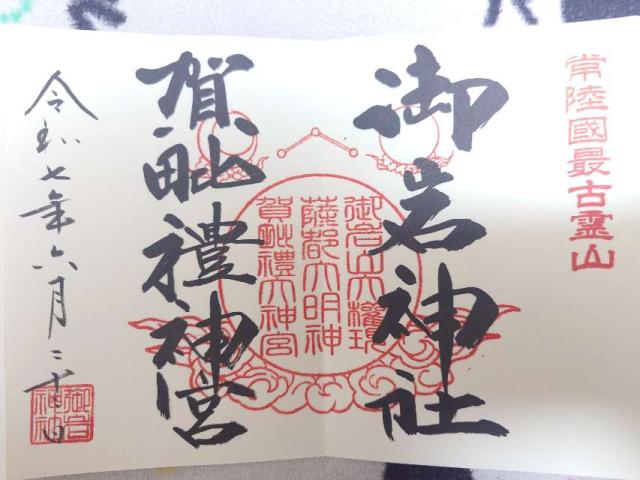 常陸國最古霊山
御岩神社
御岩山大權現
薩都大明神
賀毗禮大神宮
賀毗禮神宮
令和七年六月二十日